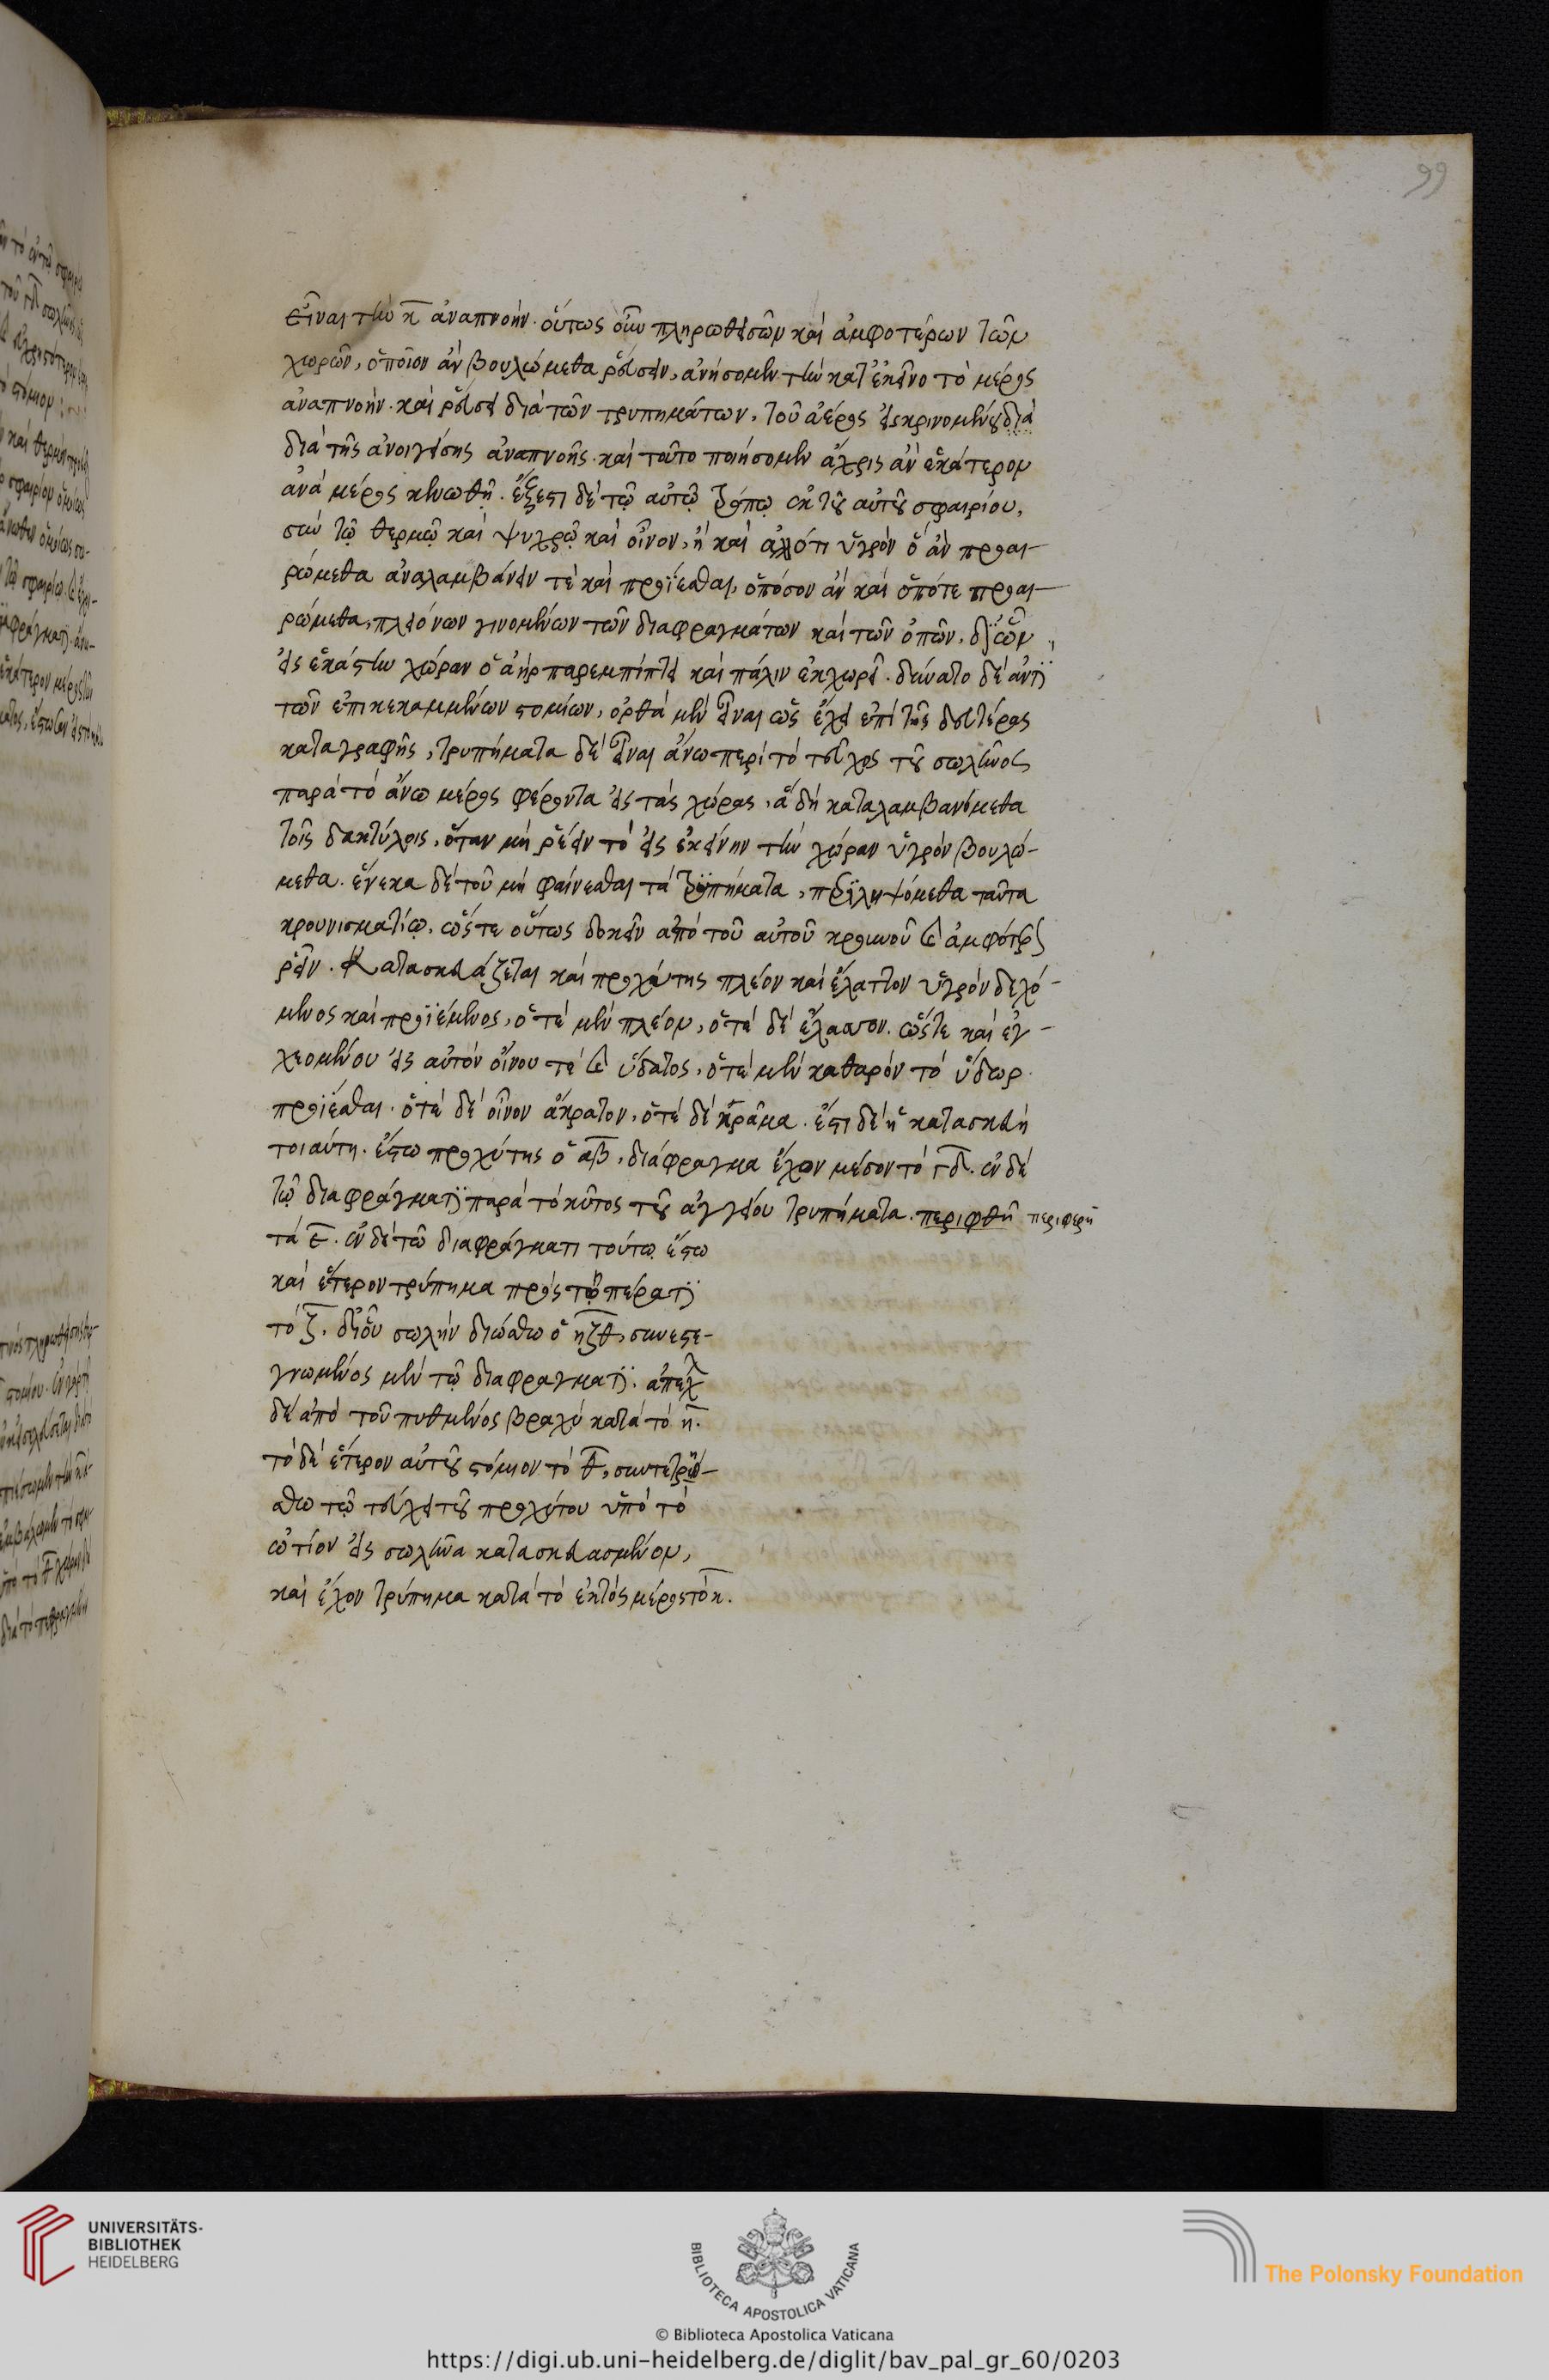 99
εἶναι τὴν κ̅ ἀναπνοήν. οὕτως οὖν πληρωθεισῶν καὶ ἀμφοτέρων τῶν
χωρῶν, ὁποῖον ἂν βουλώμεθα ῥεύσειν, ἀνήσομεν τὴν κατ' ἐκεῖνο τὸ μέρος
ἀναπνοήν. καὶ ῥεύσει διὰ τῶν τρυπημάτων, τοῦ ἀέρος εἰσκρινομένου διὰ
διὰ τῆς ἀνοιγείσης ἀναπνοῆς. καὶ τοῦτο ποιήσομεν ἄχρις ἂν ἑκάτερον
ἀνὰ μέρος κενωθῇ. ἔξεστι δὲ τῷ αὐτῷ τρόπῳ ἐκ τοῦ αὐτοῦ σφαιρίου,
σὺν τῷ θερμῷ καὶ ψυχρῷ καὶ οἶνον, ἢ καὶ ἄλλο τι ὑγρὸν ὃ ἂν προαι-
ρώμεθα ἀναλαμβάνειν τὲ καὶ προΐεσθαι, ὁπόσον ἂν καὶ ὁπότε προαι-
ρώμεθα, πλειόνων γινομένων τῶν διαφραγμάτων καὶ τῶν ὀπῶν, δι' ὧν
εἰς ἑκάστην χώραν ὁ ἀὴρ παρεμπίπτει καὶ πάλιν ἐκχωρεῖ. δύναιτο δὲ ἀντὶ
τῶν ἐπικεκαμμένων στομίων, ὀρθὰ μὲν εἶναι ὡς ἔχει ἐπὶ τῆς δευτέρας
καταγραφῆς, τρυπήματα δὲ εἶναι ἄνω περὶ τὸ τεῦχος τοῦ σωλῆνος
παρὰ τὸ ἄνω μέρος φέροντα εἰς τὰς χώρας, ἃ δὴ καταλαμβανόμεθα
τοῖς δακτύλοις, ὅταν μὴ ῥέειν τὸ εἰς ἐκείνην τὴν χώραν ὑγρὸν βουλώ-
μεθα. ἕνεκα δὲ τοῦ μὴ φαίνεσθαι τὰ τρυπήματα, περιληψόμεθα ταῦτα
κρουνισματίῳ. ὥστε οὕτως δοκεῖν ἀπὸ τοῦ αὐτοῦ κρουνοῦ καὶ ἀμφότερα
ῥεῖν. Κατασκευάζεται καὶ προχύτης πλέον καὶ ἔλαττον ὑγρὸν δεχό-
μενος καὶ προϊέμενος, ὁτὲ μὲν πλέον, ὁτὲ δὲ ἔλασσον. ὥστε καὶ ἐγ-
χεομένου εἰς αὐτὸν οἴνου τὲ καὶ ὕδατος, ὁτὲ μὲν καθαρὸν τὸ ὕδωρ
προΐεσθαι. ὁτὲ δὲ οἶνον ἄκρατον, ὁτὲ δὲ κρᾶμα. ἔστι δὲ ἡ κατασκευὴ
τοιαύτη. ἔστω προχύτης ὁ α̅β̅, διάφραγμα ἔχων μέσον τὸ γ̅δ̅. ἐν δὲ
τῷ διαφράγματι παρὰ τὸ κῦτος τοῦ ἀγγείου τρυπήματα. περιφθῆ περιφερῆ
τὰ ε̅. ἐν δὲ τῷ διαφράγματι τούτῳ ἔστω
καὶ ἕτερον τρύπημα πρὸς τῷ πέρατι
τὸ ζ̅. δι' οὗ σωλὴν διώσθω ὁ η̅ζ̅θ̅, συνεστε-
γνωμένος μὲν τῷ διαφράγματι. ἀπέχ
δὲ ἀπὸ τοῦ πυθμένος βραχὺ κατὰ τὸ η̅.
τὸ δὲ ἕτερον αὐτοῦ στόμιον τὸ θ̅, συντετρῶ-
σθω τῷ τεύχει τοῦ προχύτου ὑπὸ τὸ
ὠτίον εἰς σωλῆνα κατασκευασμένον,
καὶ ἔχον τρύπημα κατὰ τὸ ἐκτὸς μέρος τὸ κ̅.
UNIVERSITÄTS-
BIBLIOTHEK
HEIDELBERG
BIBLIOTECA APOSTOLICA VATICANA
The Polonsky Foundation
© Biblioteca Apostolica Vaticana
https://digi.ub.uni-heidelberg.de/diglit/bav_pal_gr_60/0203